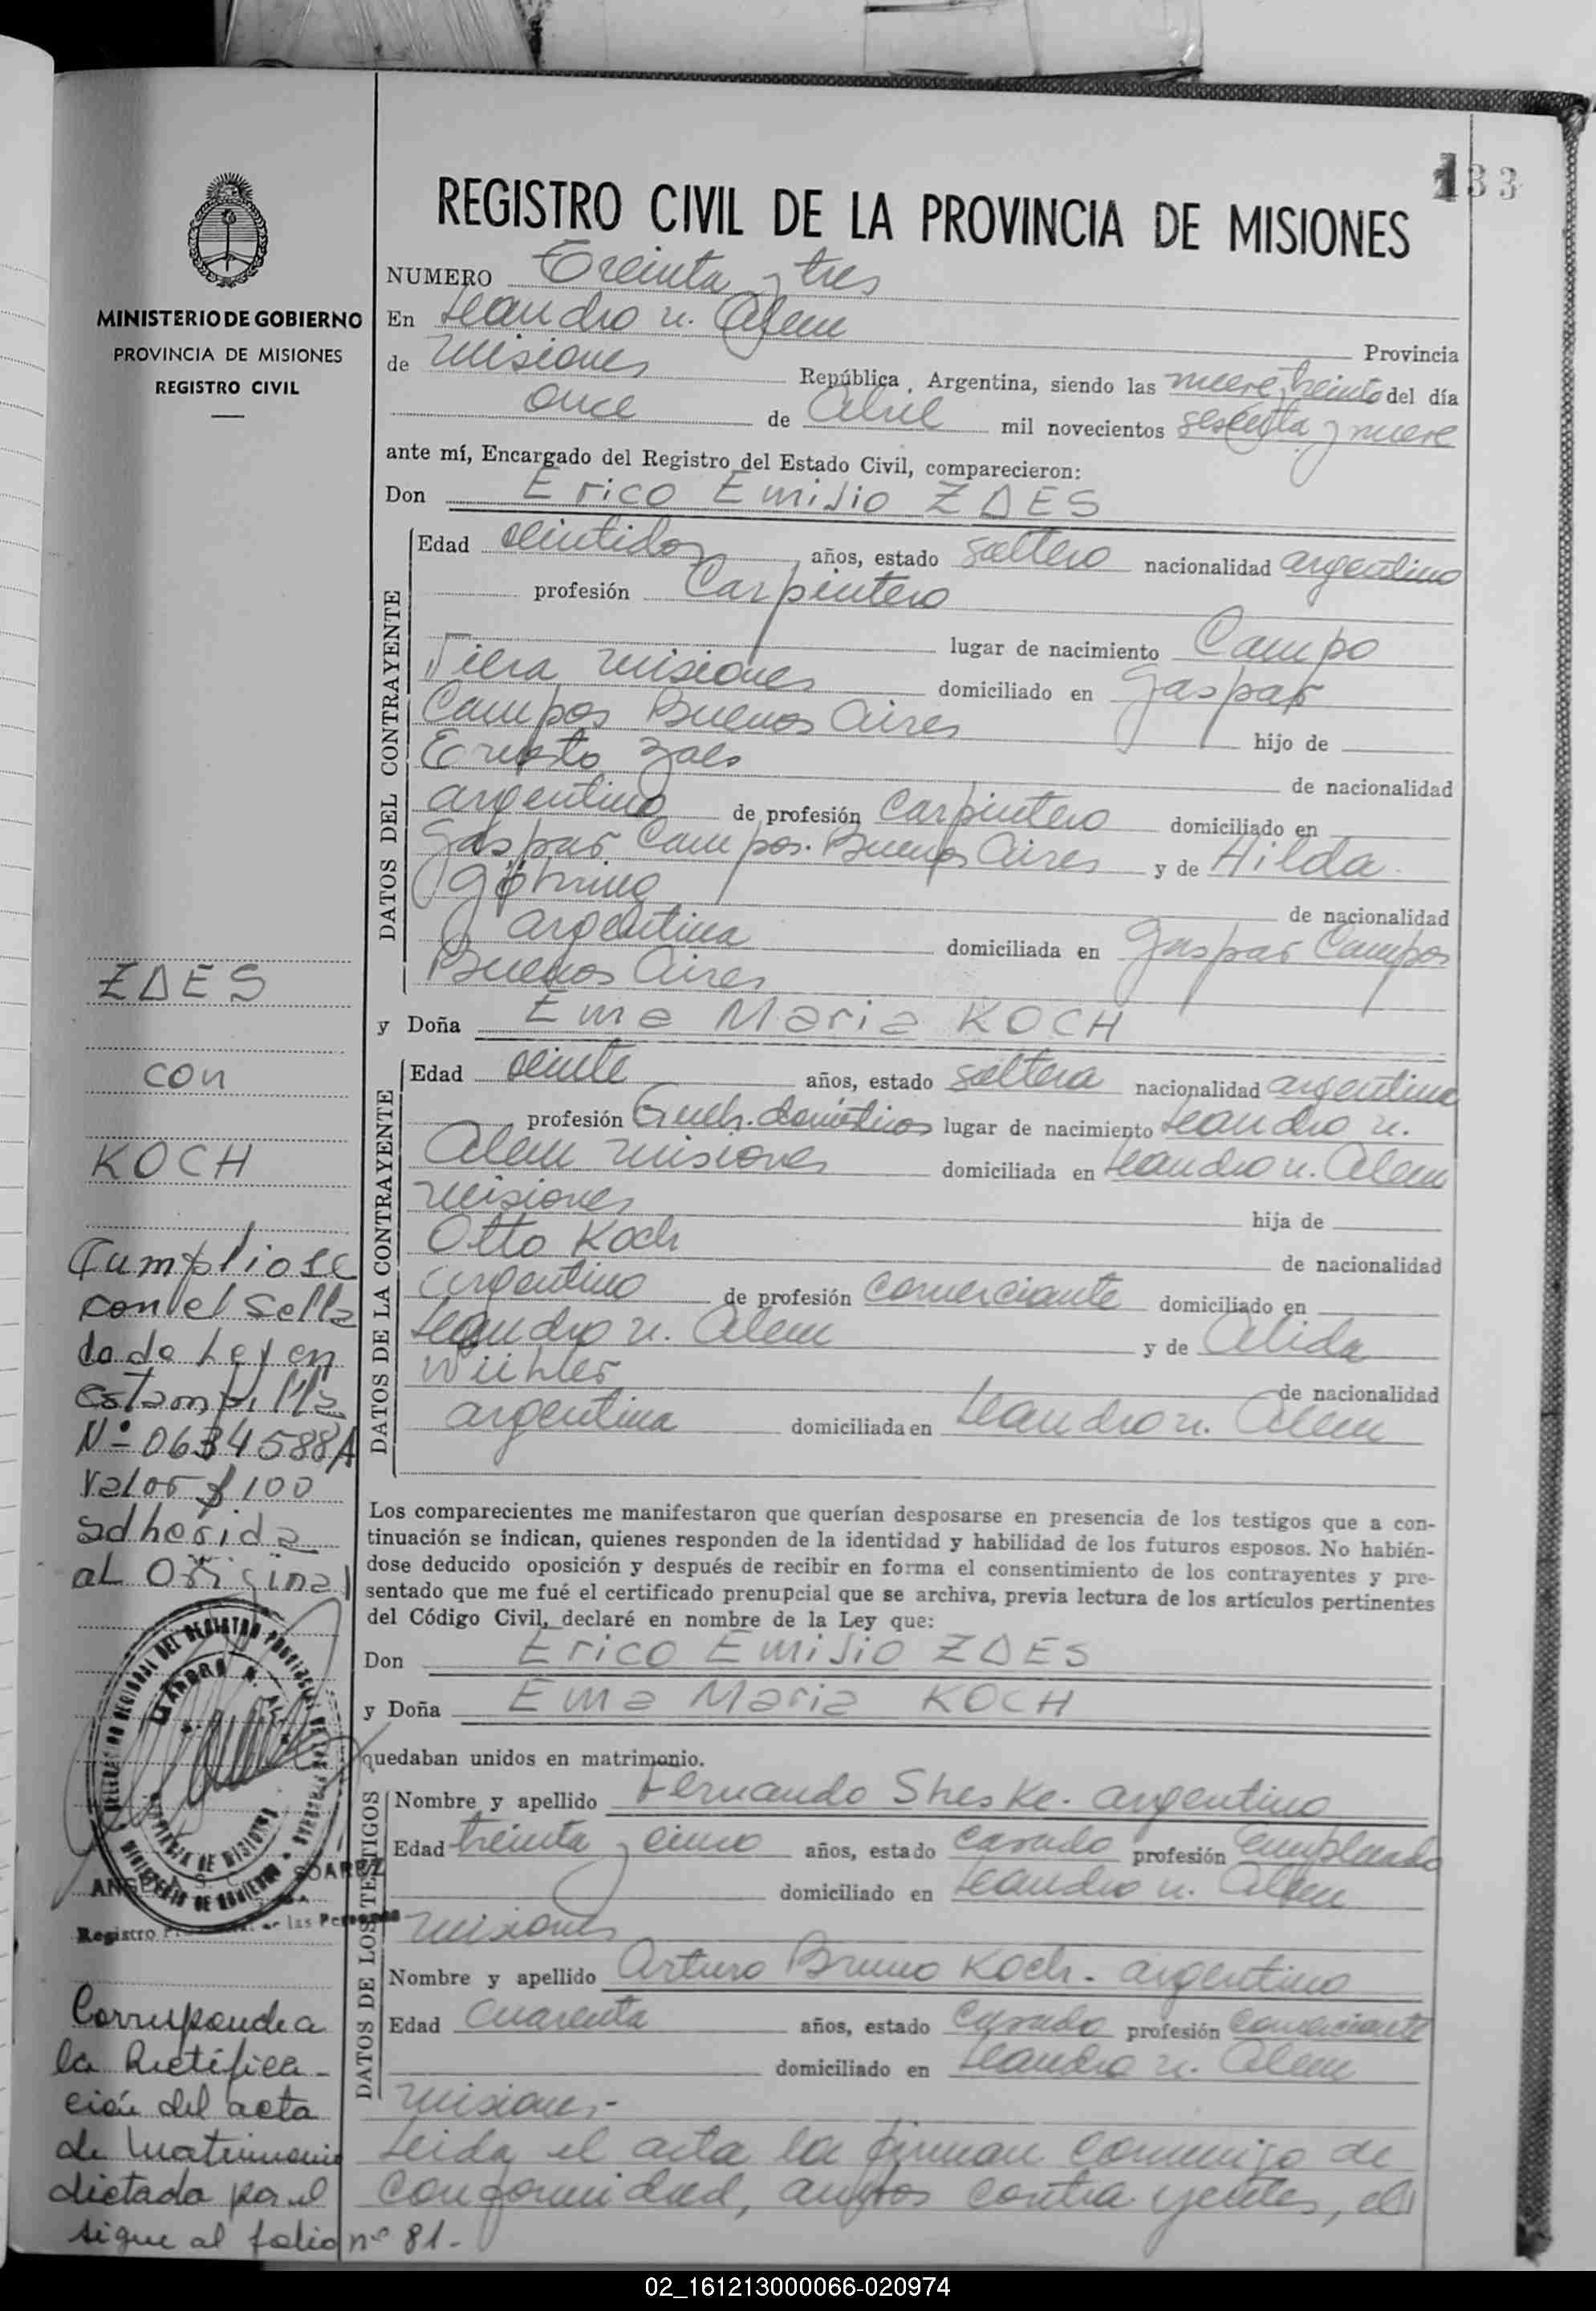 133
REGISTRO CIVIL DE LA PROVINCIA DE MISIONES
MINISTERIO DE GOBIERNO
PROVINCIA DE MISIONES
REGISTRO CIVIL
NUMERO Treinta y tres
En Leandro N. Alem Provincia
de Misiones República Argentina, siendo las nueve treinta del día
once de Abril mil novecientos sesenta y nueve
ante mí, Encargado del Registro del Estado Civil, comparecieron:
Don Erico Emilio ZAES
DATOS DEL CONTRAYENTE
Edad veintidos años, estado soltero nacionalidad argentino
profesión Carpintero
lugar de nacimiento Campo
Viera Misiones domiciliado en Gaspar
Campos Buenos Aires hijo de
Ernesto Zaes de nacionalidad
argentino de profesión Carpintero domiciliado en
Gaspar Campos. Buenos Aires y de Hilda
Göhring de nacionalidad
argentina domiciliada en Gaspar Campos
Buenos Aires
y Doña Ema Maria KOCH
DATOS DE LA CONTRAYENTE
Edad veinte años, estado soltera nacionalidad argentina
profesión Queh. domésticos lugar de nacimiento Leandro N.
Alem Misiones domiciliada en Leandro N. Alem
Misiones hija de
Otto Koch de nacionalidad
argentino de profesión Comerciante domiciliado en
Leandro N. Alem y de Alida
de nacionalidad
argentina domiciliada en Leandro N. Alem
Los comparecientes me manifestaron que querían desposarse en presencia de los testigos que a con-
tinuación se indican, quienes responden de la identidad y habilidad de los futuros esposos. No habién-
dose deducido oposición y después de recibir en forma el consentimiento de los contrayentes y pre-
sentado que me fué el certificado prenupcial que se archiva, previa lectura de los artículos pertinentes
del Código Civil, declaré en nombre de la Ley que:
Don Erico Emilio ZAES
y Doña Ema Maria KOCH
quedaban unidos en matrimonio.
DATOS DE LOS TESTIGOS
Nombre y apellido Fernando Sheske. argentino
Edad treinta y cinco años, estado Casado profesión Empleado
domiciliado en Leandro N. Alem
Misiones
Nombre y apellido Arturo Bruno Koch - argentino
Edad Cuarenta años, estado Casado profesión Comerciante
domiciliado en Leandro N. Alem
Misiones.-
Leida el acta la firman conmigo de
conformidad, ambos contrayentes, el
ZAES
con
KOCH
Cumpliose
con el Sella
do de Ley en
estampilla
Nº 0634588A
Valor $ 100
adherida
al Original
LEANDRO N.
PROVINCIA DE MISIONES
MINISTERIO DE GOBIERNO
SOAREZ
Registro de las Personas
Corresponde a
la Rectifica-
ción del acta
de Matrimonio
dictada por el
sigue al folio nº 81.-
02_161213000066-020974